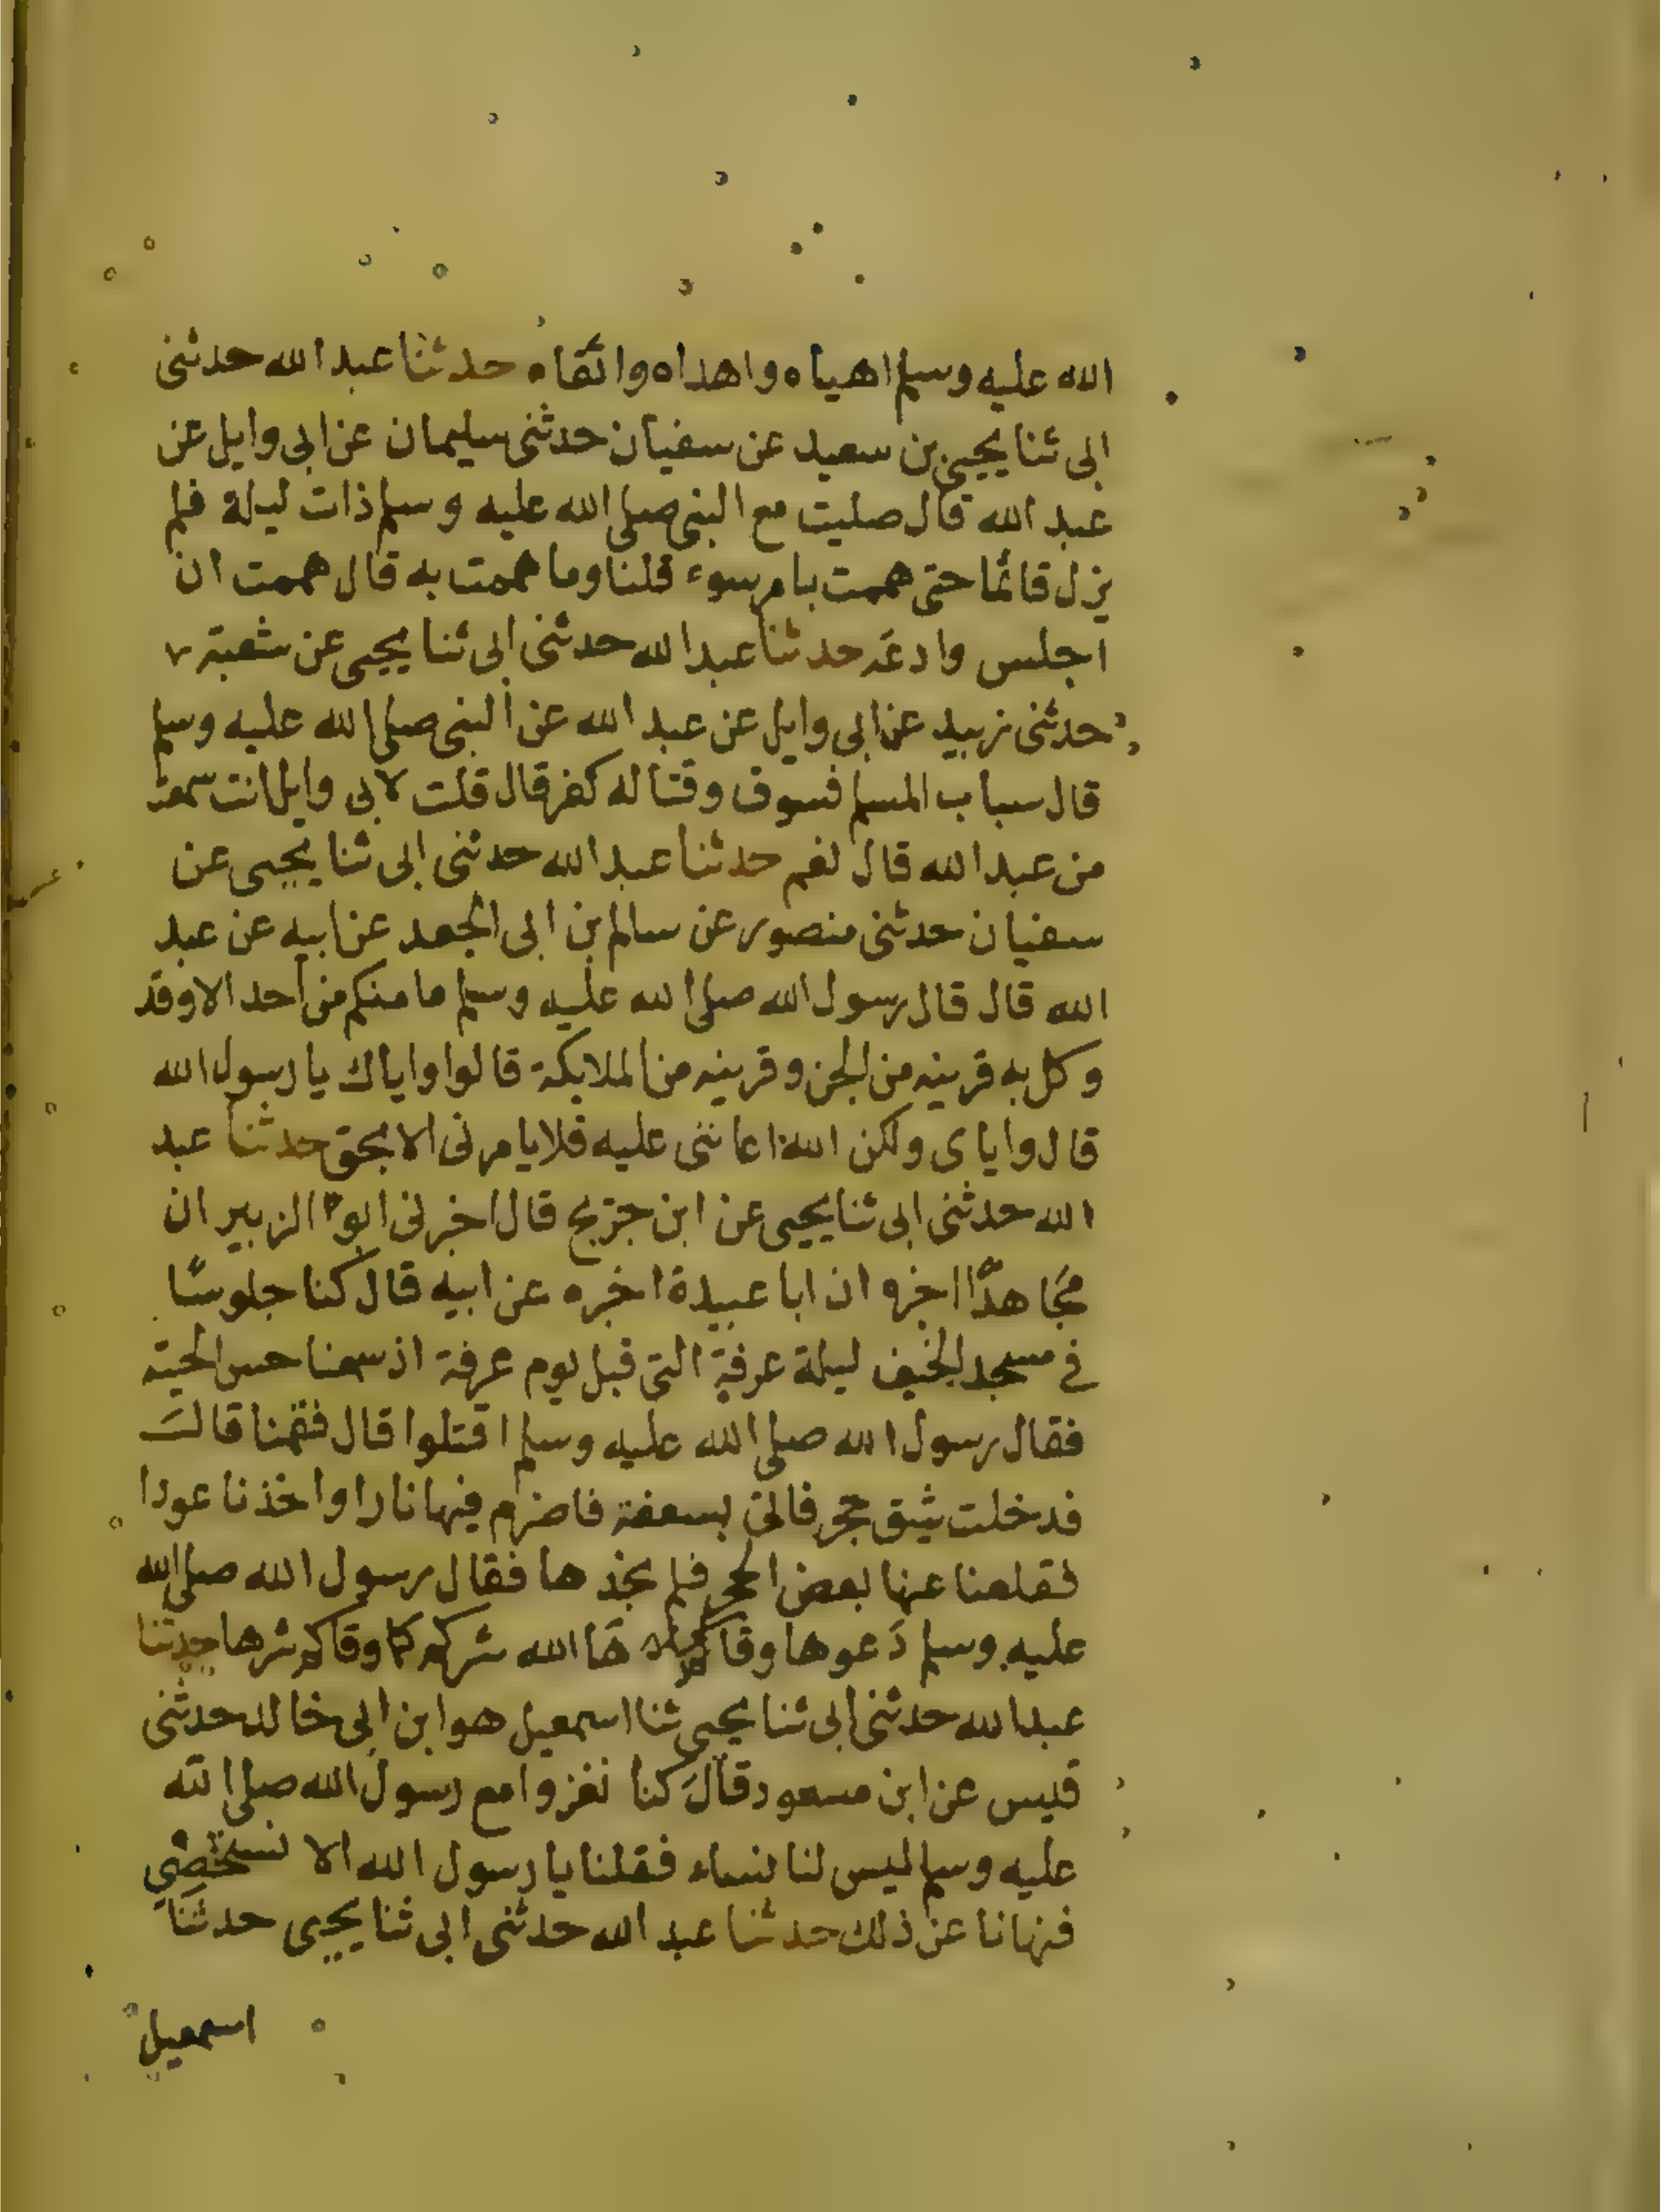 الله عليه وسلم اهياه واهداه واتقاه حدثنا عبد الله حدثنى
ابى ثنا يحيى بن سعيد عن سفيان حدثنى سليمان عن ابى وايل عن
عبد الله قال صليت مع النبى صلى الله عليه وسلم ذات ليلة فلم
يزل قائما حتى هممت بامر سوء قلنا وما هممت به قال هممت ان
اجلس وادعه حدثنا عبد الله حدثنى ابى ثنا يحيى عن شعبة
حدثنى زبيد عن ابى وايل عن عبد الله عن النبى صلى الله عليه وسلم
قال سباب المسلم فسوق وقتاله كفر قال قلت لابى وايل انت سمعت
من عبد الله قال نعم حدثنا عبد الله حدثنى ابى ثنا يحيى عن
سفيان حدثنى منصور عن سالم بن ابى الجعد عن ابيه عن عبد
الله قال قال رسول الله صلى الله عليه وسلم ما منكم من احد الا وقد
وكل به قرينه من الجن وقرينه من الملايكة قالوا واياك يا رسول الله
قال واياى ولكن الله اعاننى عليه فلا يامرنى الا بحق حدثنا عبد
الله حدثنى ابى ثنا يحيى عن ابن جريج قال اخبرنى ابو الزبير ان
مجاهدًا اخبره ان ابا عبيدة اخبره عن ابيه قال كنا جلوسًا
فى مسجد الخيف ليلة عرفة التى قبل يوم عرفة اذ سمعنا حس الحية
فقال رسول الله صلى الله عليه وسلم اقتلوا قال فقمنا قالت
فدخلت شق جحر فاتى بسعفة فاضرم فيها نارا واخذنا عودا
فقلعنا عنها بعض الجحر فلم نجدها فقال رسول الله صلى الله
عليه وسلم دَعوها وقاها الله شركم كما وقاكم شرها حدثنا
عبد الله حدثنى ابى ثنا يحيى ثنا اسمعيل هو ابن ابى خالد حدثنى
قيس عن ابن مسعود قالَ كنا نغزوا مع رسول الله صلى الله
عليه وسلم ليس لنا نساء فقلنا يا رسول الله الا نستخصى
فنهانا عن ذلك حدثنا عبد الله حدثنى ابى ثنا يحيى حدثنا
اسمعيل